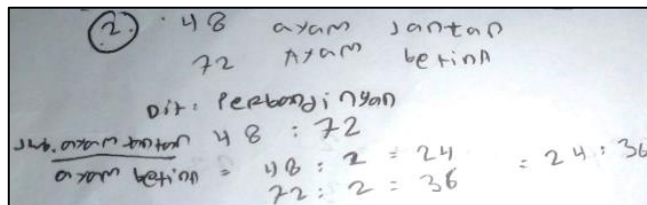 2. 48 ayam jantan
72 Ayam betinA
Dit: Perbandingan
Jmb. ayam jantan 48 : 72
ayam betina = 48 : 2 = 24 = 24 : 36
72 : 2 = 36